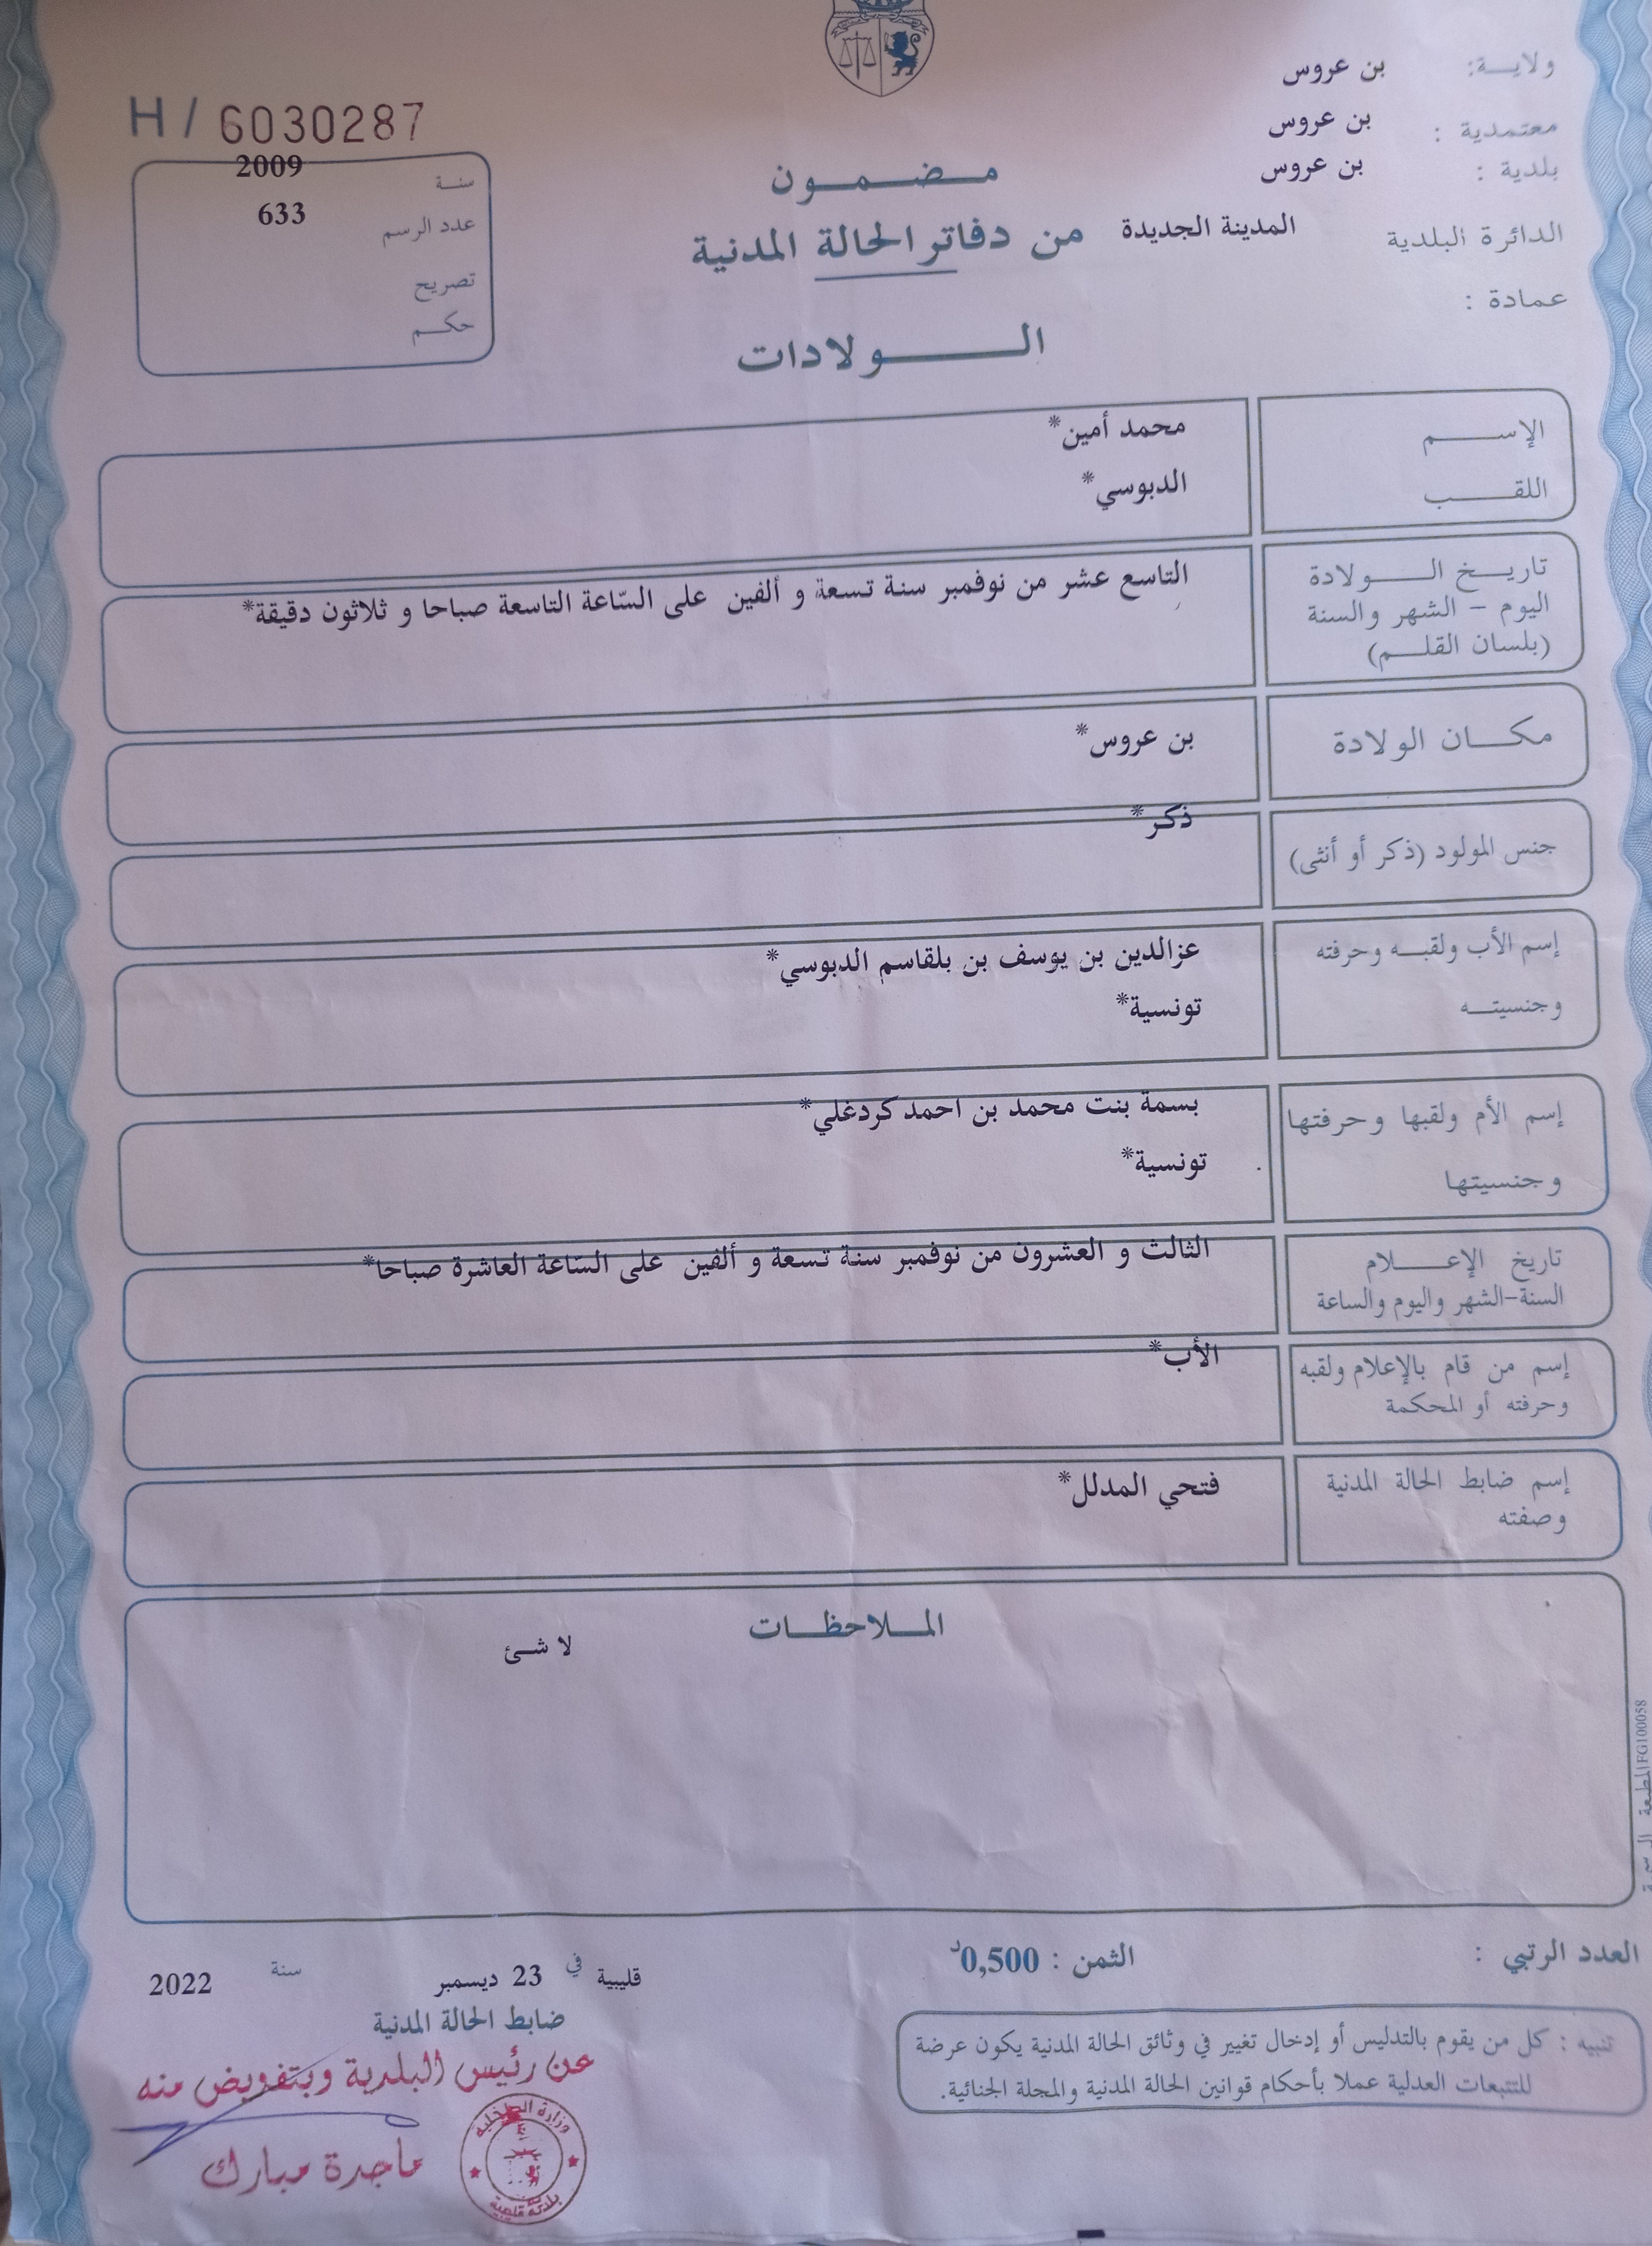 ولاية: بن عروس
معتمدية : بن عروس
بلدية : بن عروس
الدائرة البلدية المدينة الجديدة
عمادة :
H / 6030287
سنة 2009
عدد الرسم 633
تصريح
حكم
مضمون
من دفاتر الحالة المدنية
الولادات
الإسم محمد أمين*
اللقب الدبوسي*
تاريخ الولادة
اليوم - الشهر والسنة
(بلسان القلم)
التاسع عشر من نوفمبر سنة تسعة و ألفين على السّاعة التاسعة صباحا و ثلاثون دقيقة*
مكان الولادة بن عروس*
جنس المولود (ذكر أو أنثى) ذكر*
إسم الأب ولقبه وحرفته عزالدين بن يوسف بن بلقاسم الدبوسي*
وجنسيته تونسية*
إسم الأم ولقبها وحرفتها بسمة بنت محمد بن احمد كردغلي*
وجنسيتها تونسية*
تاريخ الإعلام
السنة-الشهر واليوم والساعة
الثالث و العشرون من نوفمبر سنة تسعة و ألفين على السّاعة العاشرة صباحا*
إسم من قام بالإعلام ولقبه
وحرفته أو المحكمة
الأب*
إسم ضابط الحالة المدنية
وصفته
فتحي المدلل*
الملاحظات
لا شئ
العدد الرتبي :
الثمن : 0,500د
قليبية في 23 ديسمبر سنة 2022
ضابط الحالة المدنية
عن رئيس البلدية وبتفويض منه
ماجدة مبارك
وزارة الداخلية
بلدية قليبية
تنبيه : كل من يقوم بالتدليس أو إدخال تغيير في وثائق الحالة المدنية يكون عرضة
للتتبعات العدلية عملا بأحكام قوانين الحالة المدنية والمجلة الجنائية.
FG100058